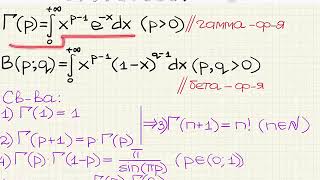 Γ(p)=∫₀^{+∞} x^{p-1} e^{-x}dx (p>0) //гамма-ф-я
B(p;q)=∫₀^{+∞} x^{p-1}(1-x)^{q-1}dx (p,q>0)
//бета-ф-я
Св-ва:
1) Γ(1)=1
⇒3) Γ(n+1)=n! (n∈N)
2) Γ(p+1)=p Γ(p)
4) Γ(p)·Γ(1-p)=π/sin(πp) (p∈(0;1)